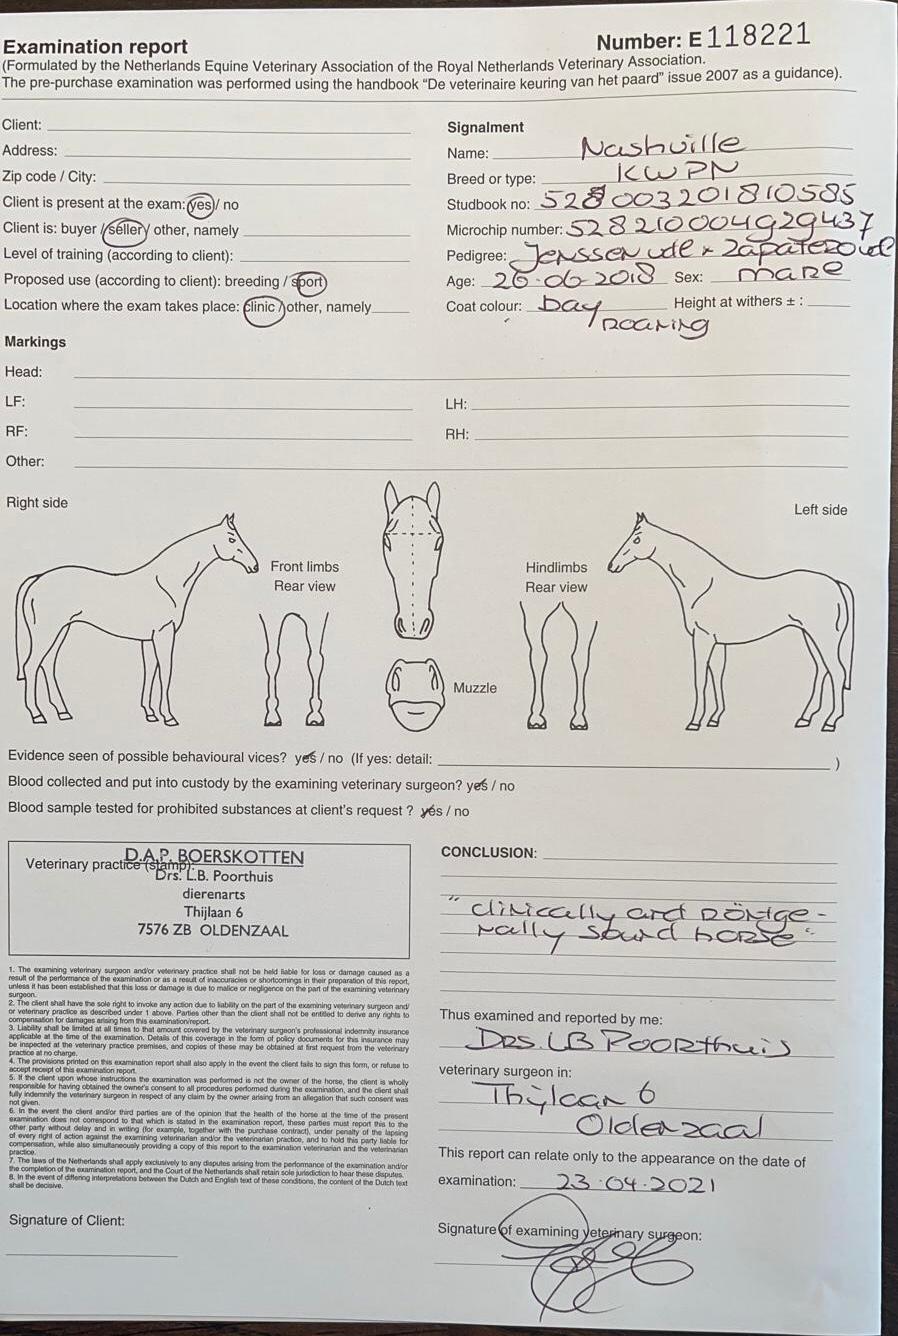 Examination report
Number: E 118221
(Formulated by the Netherlands Equine Veterinary Association of the Royal Netherlands Veterinary Association.
The pre-purchase examination was performed using the handbook “De veterinaire keuring van het paard” issue 2007 as a guidance).
Client:
Address:
Zip code / City:
Client is present at the exam: yes / no
Client is: buyer / seller / other, namely
Level of training (according to client):
Proposed use (according to client): breeding / sport
Location where the exam takes place: clinic / other, namely
Signalment
Name: Nashville
Breed or type: KWPN
Studbook no: 528 003201810585
Microchip number: 528210004929437
Pedigree: Jenssen vdl x Zapatero vdl
Age: 26-06-2018 Sex: mare
Coat colour: Bay Height at withers ± :
roaning
Markings
Head:
LF:
LH:
RF:
RH:
Other:
Right side
Left side
Front limbs
Rear view
Hindlimbs
Rear view
Muzzle
Evidence seen of possible behavioural vices? yes / no (If yes: detail: )
Blood collected and put into custody by the examining veterinary surgeon? yes / no
Blood sample tested for prohibited substances at client's request ? yes / no
Veterinary practice (stamp):
D.A.P. BOERSKOTTEN
Drs. L.B. Poorthuis
dierenarts
Thijlaan 6
7576 ZB OLDENZAAL
1. The examining veterinary surgeon and/or veterinary practice shall not be held liable for loss or damage caused as a
result of the performance of the examination or as a result of inaccuracies or shortcomings in their preparation of this report,
unless it has been established that this loss or damage is due to malice or negligence on the part of the examining veterinary
surgeon.
2. The client shall have the sole right to invoke any action due to liability on the part of the examining veterinary surgeon and/
or veterinary practice as described under 1 above. Parties other than the client shall not be entitled to derive any rights to
compensation for damages arising from this examination/report.
3. Liability shall be limited at all times to that amount covered by the veterinary surgeon's professional indemnity insurance
applicable at the time of the examination. Details of this coverage in the form of policy documents for this insurance may
be inspected at the veterinary practice premises, and copies of these may be obtained at first request from the veterinary
practice at no charge.
4. The provisions printed on this examination report shall also apply in the event the client fails to sign this form, or refuse to
accept receipt of this examination report.
5. If the client upon whose instructions the examination was performed is not the owner of the horse, the client is wholly
responsible for having obtained the owner's consent to all procedures performed during the examination, and the client shall
fully indemnify the veterinary surgeon in respect of any claim by the owner arising from an allegation that such consent was
not given.
6. In the event the client and/or third parties are of the opinion that the health of the horse at the time of the present
examination does not correspond to that which is stated in the examination report, these parties must report this to the
other party without delay and in writing (for example, together with the purchase contract), under penalty of the lapsing
of every right of action against the examining veterinarian and/or the veterinary practice, and to hold this party liable for
compensation, while also simultaneously providing a copy of this report to the examination veterinarian and the veterinarian
practice.
7. The laws of the Netherlands shall apply exclusively to any disputes arising from the performance of the examination and/or
the completion of the examination report, and the Court of the Netherlands shall retain sole jurisdiction to hear these disputes.
8. In the event of differing interpretations between the Dutch and English text of these conditions, the content of the Dutch text
shall be decisive.
Signature of Client:
CONCLUSION:
"clinically and röntge-
nally sound horse"
Thus examined and reported by me:
Drs. LB Poorthuis
veterinary surgeon in:
Thijlaan 6
Oldenzaal
This report can relate only to the appearance on the date of
examination: 23-04-2021
Signature of examining veterinary surgeon: